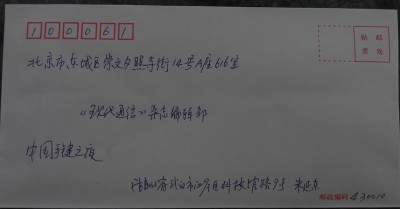 100061
贴 邮
票 处
北京市东城区崇文夕照寺街14号A座616室
《现代通信》杂志编辑部
中国手建之夜
湖北省武汉市江岸区科技馆路9号
邮政编码 430010